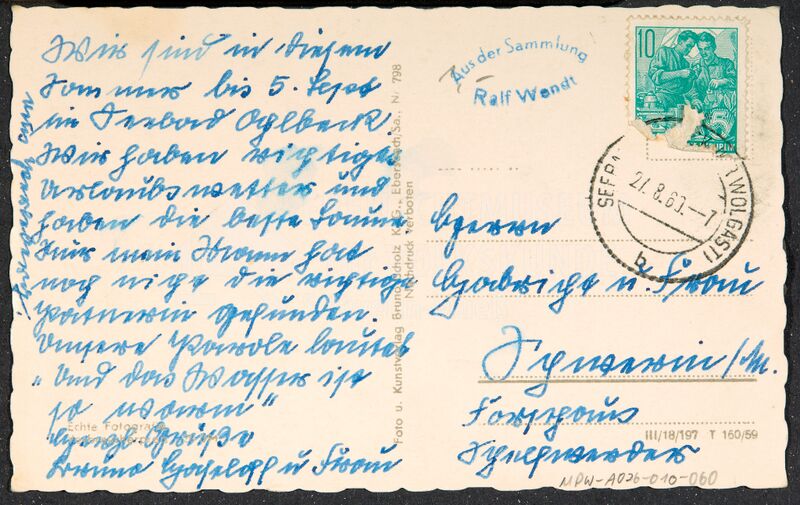 Wir sind in diesem
Sommer bis 5. Sept
im Seebad Ahlbeck.
Wir haben richtiges
Urlaubswetter und
haben die beste Laune
Nur mein Mann hat
noch nicht die richtige
Partnerin gefunden.
Unsere Parole lautet
„Und das Wasser ist
so warm“
Herzl. Grüße
Bruno u Frau
Echte Fotografie
Foto u. Kunstverlag Bruno Scholz K.-G., Ebersbach/Sa., Nr. 798
Nachdruck verboten
Aus der Sammlung
Ralf Wendt
10
5
SEEBA
27.8.60.-7
WOLGAST
b
Herrn
u. Frau
Schwerin/M.
Forsthaus
Schelfwerder
III/18/197 T 160/59
MPW-A026-010-060